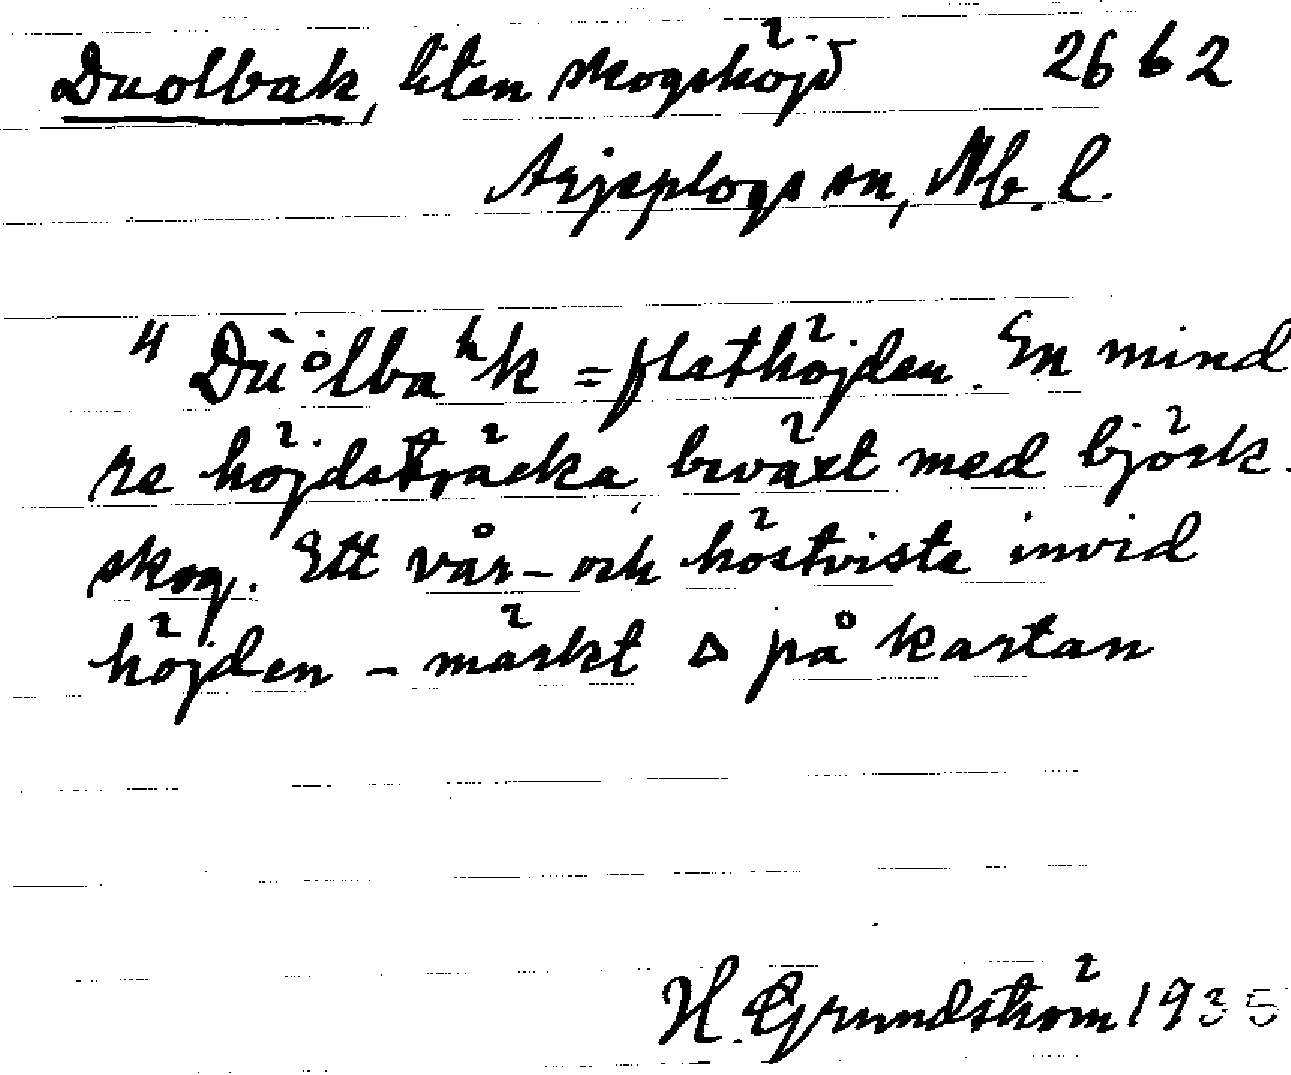 Duolbak, liten skogshöjd 26 b 2
Arjeplogs sn, Nb. l.
" Dùålbaʰk = flathöjden. En mind
re höjdsträcka, beväxt med björk-
skog. Ett vår- och höstviste invid
höjden - märkt △ på kartan
H. Grundström 1935